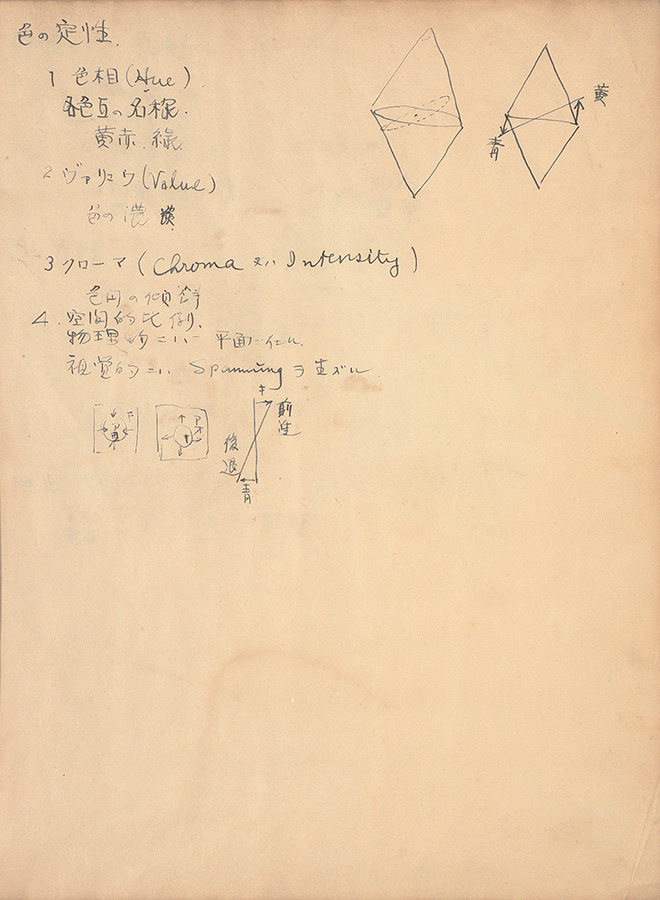 色の定性.
1 色相(Hue)
各色互の名称.
黄赤.緑.
2 ヴァリュウ(Value)
色の濃淡
3 クローマ(Chroma 又ハ Intensity)
色円の傾斜
4.空間的比例.
物理的ニハ 平面ニイル.
視覚的ニハ Spannungヲ生ズル
黄
青
キ
前進
後退
青